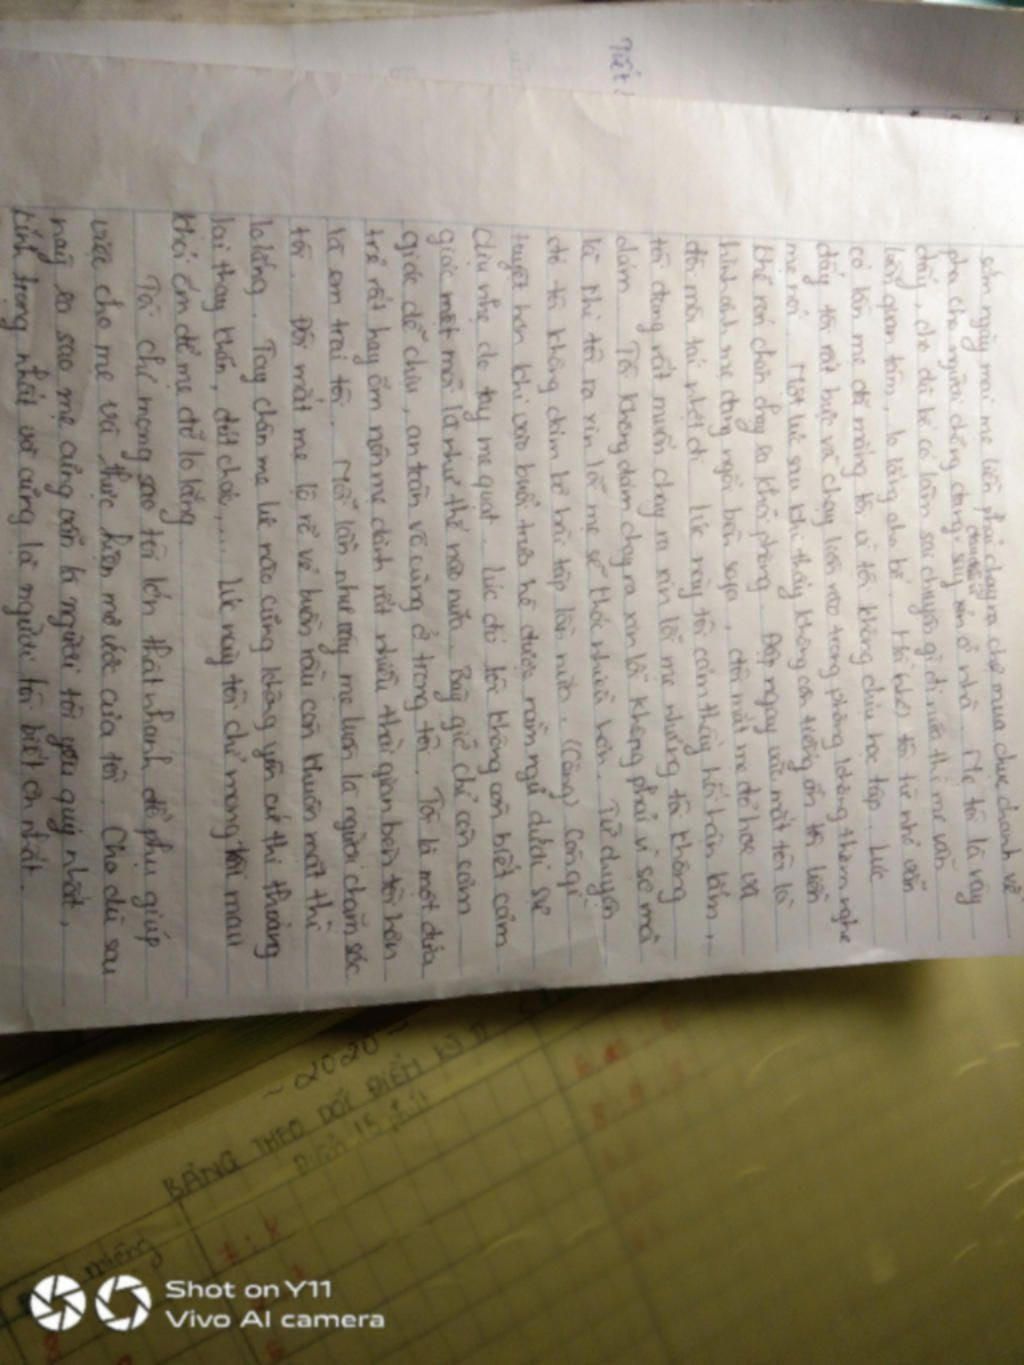 sớm ngày mai mẹ liền phải chạy ra chợ mua chục chanh về
pha cho người chồng đang say xỉn ở nhà. Mẹ tôi là vậy
đấy, cho dù kể cả làm sai chuyện gì đi nữa thì mẹ vẫn
luôn quan tâm, lo lắng cho bố. tôi từ nhỏ vẫn
có lần mẹ đã mắng tôi vì tôi không chịu học tập. Lúc
đấy tôi rất bực và chạy luôn vào trong phòng không thèm nghe
mẹ nói. Một lúc sau khi thấy không còn tiếng ồn tôi liền
khẽ rón chân chạy ra khỏi phòng. Đập ngay vào mắt tôi là
hình ảnh mẹ đang ngồi bên sopa, đôi mắt mẹ đỏ hoe và
đôi môi tái nhợt đi. Lúc này tôi cảm thấy hối hận lắm,
tôi đang rất muốn chạy ra xin lỗi mẹ nhưng tôi không
dám. Tôi không dám chạy ra xin lỗi không phải vì sợ mà
là khi tôi ra xin lỗi mẹ sẽ khóc nhiều hơn. Từ chuyện
đó tôi không dám bỏ bài tập lần nữa. Còn gì
tuyệt hơn khi vào buổi trưa hè được nằm ngủ dưới sự
dịu nhẹ do tay mẹ quạt. Lúc đó tôi không còn biết cảm
giác mệt mỏi là như thế nào nữa. Bây giờ chỉ còn cảm
giác dễ chịu, an toàn vô cùng ở trong tôi. Tôi là một đứa
trẻ rất hay ốm nên mẹ dành rất nhiều thời gian bên tôi hơn
là em trai tôi. Mỗi lần như vậy mẹ luôn là người chăm sóc
tôi. Đôi mắt mẹ lộ rõ vẻ buồn rầu còn khuôn mặt thì
lo lắng. Tay chân mẹ lúc nào cũng không yên cứ thi thoảng
lại thay khăn, đút cháo,... Lúc này tôi chỉ mong tôi mau
khỏi ốm để mẹ đỡ lo lắng
Tôi chỉ mong sao tôi lớn thật nhanh để phụ giúp
vừa cho mẹ và thực hiện mơ ước của tôi. Cho dù sau
này ra sao mẹ cũng vẫn là người tôi yêu quý nhất,
kính trọng nhất và cũng là người tôi biết ơn nhất.
Tiết
~ 2020 ~
BẢNG THEO DÕI ĐIỂM KỲ II
Điểm 15 phút
miệng
Shot on Y11
Vivo AI camera